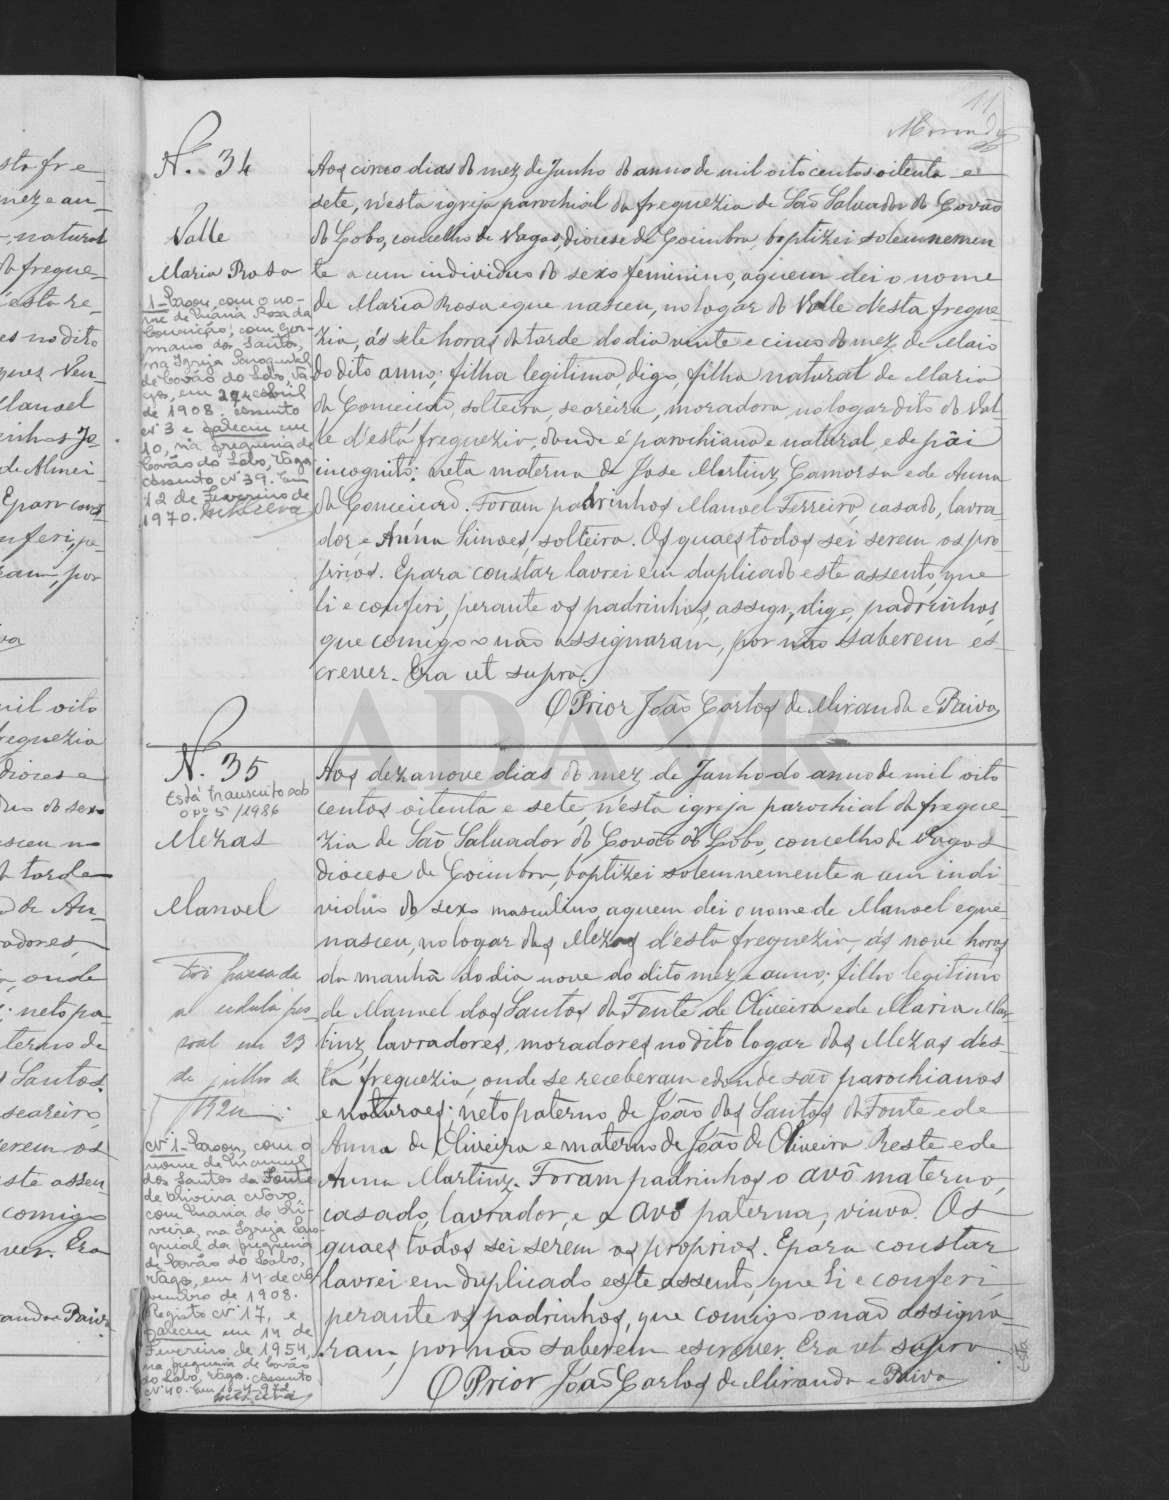 11
Miranda
N.º 34
Valle
Maria Rosa
1- Casou, com o no-
me de Maria Rosa da
Conceição, com Ger-
mano dos Santos,
na Igreja Paroquial
de Covão do Lobo, Va-
gos, em 29 Abril
de 1908. assento
nº 3 e faleceu em
10, na freguesia de
Covão do Lobo, Vagos
assento nº 39. Em
12 de Fevereiro de
1970.
Aos cinco dias do mez de Junho do anno de mil oito centos oitenta e
sete, n'esta igreja parochial da freguezia de São Salvador do Covão
do Lobo, concelho de Vagos, diocese de Coimbra, baptizei solemnemen
te a um individuo do sexo feminino, aquem dei o nome
de Maria Rosa e que nasceu, no logar do Valle d'esta fregue-
zia, ás sete horas da tarde do dia vinte e cinco do mez de Maio
do dito anno; filha legitima, digo, filha natural de Maria
da Conceicão, solteira, seareira, moradora, no logar dito do Val-
le d'esta freguezia, donde é parochiana e natural, e de pái
incognito; neta materna de Jose Martinz Camorsa e de Anna
da Conceicão. Foram padrinhos Manoel Ferreira, casado, lavra-
dor, e Anna Simoes, solteira. Os quaes todos sei serem os pro-
prios. E para constar lavrei em duplicado este assento, que
li e conferi, perante os padrinhos, assign, digo, padrinhos,
que comigo o não assignaram, por não saberem es-
crever. Era ut supra.
O Prior João Carlos de Miranda e Paiva
N.º 35
Está transcrito sob
o nº 5/1986
Mezas
Manoel
Foi passada
a cedula pes-
soal em 23
de julho de
192
Nº 1- Casou, com o
nome de Manuel
dos Santos da Fonte
de Oliveira Novo,
com Maria de Oli-
veira, na Igreja Paro-
quial da freguesia
de Covão do Lobo,
Vagos, em 14 de No-
vembro de 1908.
Registo Nº 17, e
faleceu em 14 de
Fevereiro de 1954,
na freguesia de Covão
do Lobo, Vagos. assento
Nº 10. Em
Aos dezanove dias do mez de Junho do anno de mil oito
centos oitenta e sete, n'esta igreja parochial da fregue-
zia de São Salvador do Covão do Lobo, concelho de Vagos
diocese de Coimbra, baptizei solemnemente a um indi
viduo do sexo masculino, aquem dei o nome de Manoel e que
nasceu, no logar das Mezas d'esta freguezia, ás nove horas
da manhã do dia nove do dito mez e anno; filho legitimo
de Manoel dos Santos da Fonte de Oliveira e de Maria Mar-
tinz, lavradores, moradores no dito logar das Mezas des-
ta freguezia, onde se receberam e donde são parochianos
e naturaes; neto paterno de João dos Santos da Fonte e de
Anna de Oliveira e materno de João de Oliveira Reste e de
Anna Martinz. Foram padrinhos o avô materno,
casado, lavrador, e a avó paterna, viuva. Os
quaes todos sei serem os proprios. E para constar
lavrei em duplicado este assento, que li e conferi
perante os padrinhos, que comigo o não assigna-
ram, por não saberem escrever. Era ut supra.
O Prior João Carlos de Miranda e Paiva
ADAVR